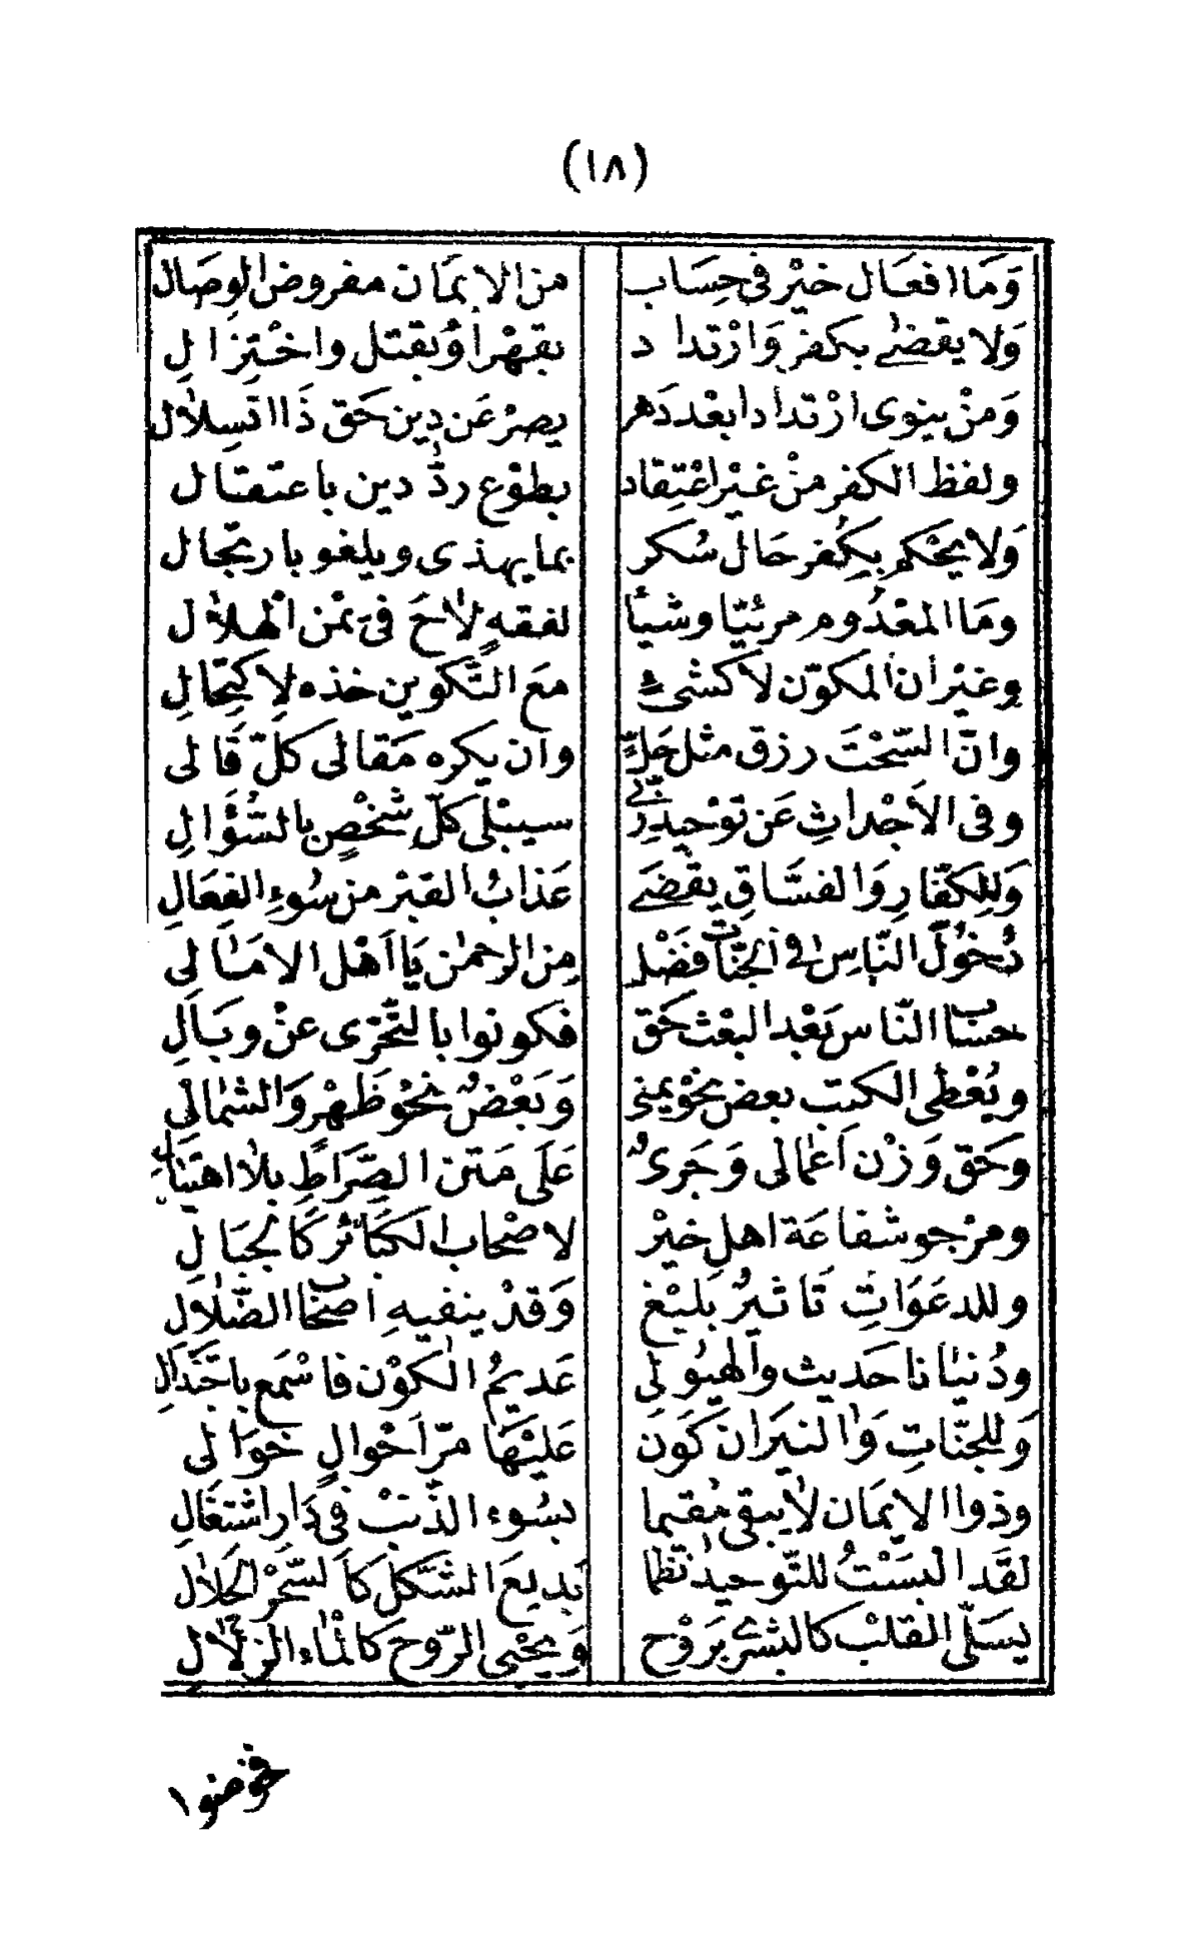 (١٨)
وَمَا افعَال خيْر فى حِسَاب من الايمَان مفروض الوِصَال
وَلا يقضٰے بكفر وَارْتداد بقهْر اوْ بقتل واخْتِزال
وَمنْ ينوى ارْتدادا بعْد دَهر يصرْ عَن دِين حَق ذَا انسِلاٰل
ولفظ الكفر منْ غيْر اعْتِقاد بطوْع ردّ دين باعتقال
وَلا يحْكم بِكُفر حَال سُكر بما يهذى ويلغو بارتجال
ومَا المعْدُوم مرئيّا وشيأً لفقهٍ لاٰحَ فى يَمْن الْهلاٰل
وغيْران المكوّن لا كشىءٍ معَ التّكوين خذه لِاكتِحَالِ
وانّ السّحْتَ رزق مثل حَلٍّ وان يكره مَقالى كلّ قَالى
وفى الاَجْداثِ عَن توْحيدِ رَبّے سيبْلى كلّ شخْصٍ بالسُّؤَالِ
وَللِكفّارِ وَالفسّاقِ يقضَے عَذابُ القبْر من سُوءِ الفِعَالِ
دُخوْلُ النّاسِ فى الجنّات فضْل مِن الرحمٰن يَا اَهْل الامَالى
حسَاب النّاس بَعْد البعْث حَق فكونوا بالتّحَرّى عنْ وبَالِ
ويُعْطى الكتب بعض نحْو يمنى وَبَعْض نحْو ظهْر وَالشمالى
وحَق وَزْن اَعمالى وَجَرى عَلَى مَتن الصِّرَاطِ بلاٰ اهتبَالِ
ومرْجو شفاعَة اهلِ خيْر لاصْحاب الكبَائر كَالجبَال
وللدعَوَاتِ تَاثيرٌ بَليْغ وَقدْ ينفيهِ اصحَاب الضّلاٰلِ
ودُنيَانا حَديث وَالهيُولى عَديمُ الكَوْن فاسْمَع باجْتذَالِ
وَللجنّاتِ وَالنيرَان كَون عَليْهَا مرّ اَحْوالٍ خوَالى
وذوا الايمَان لاٰ يبقى مُقيما بسُوء الذّنبْ فى دَارِ اشتغَالِ
لقَد البَسْتُ للتّوحيد نظما بَديعَ الشّكل كَالسّحْر الحَلاٰل
يسَلّى القلبْ كالبشرےٰ برَوْح وَيحْيى الرّوح كالْماء الزّلاٰل
فخوضوا